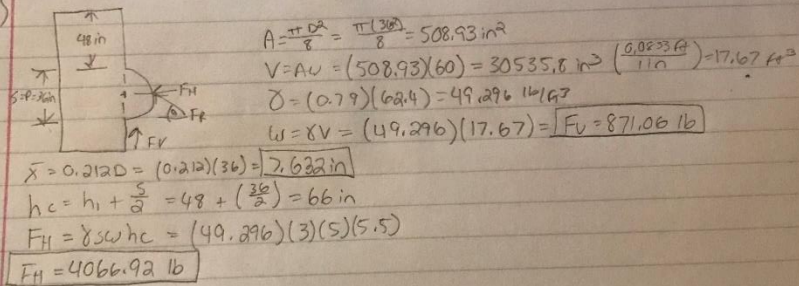 48 in
S=D=36in
FH
FR
FV
A = πD²/8 = π(36)²/8 = 508.93 in²
V = Aw = (508.93)(60) = 30535.8 in³ (0.0833 ft / 1 in) = 17.67 ft³
γ = (0.79)(62.4) = 49.296 lb/ft³
W = γV = (49.296)(17.67) = Fv = 871.06 lb
x̄ = 0.212D = (0.212)(36) = 7.632 in
hc = h₁ + S/2 = 48 + (36/2) = 66 in
FH = γswhc = (49.296)(3)(5)(5.5)
FH = 4066.92 lb